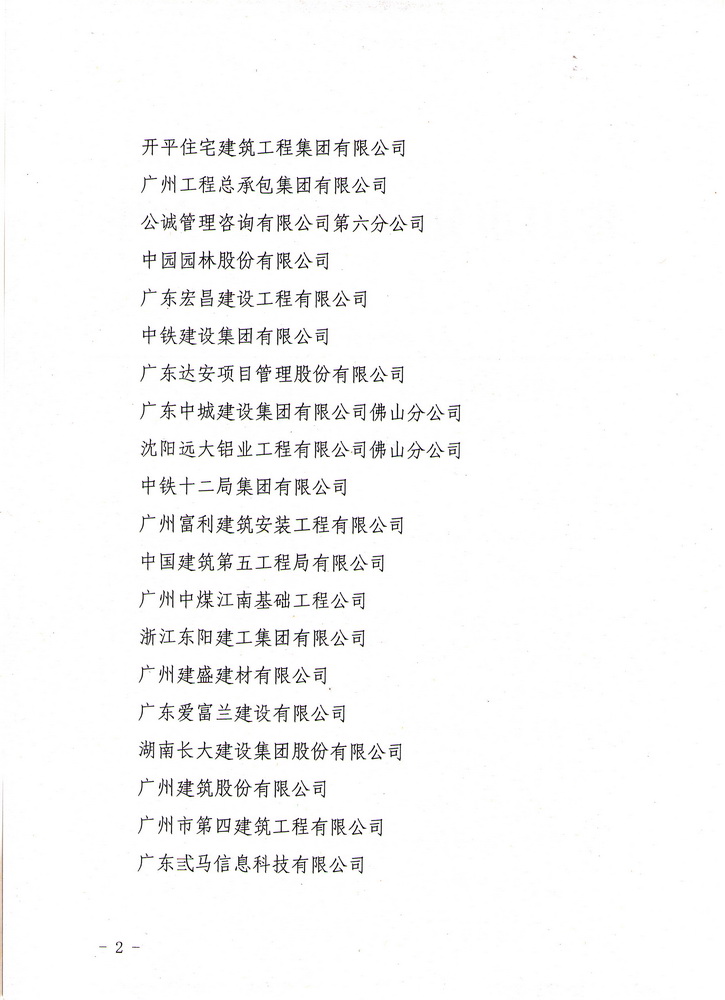 开平住宅建筑工程集团有限公司
广州工程总承包集团有限公司
公诚管理咨询有限公司第六分公司
中园园林股份有限公司
广东宏昌建设工程有限公司
中铁建设集团有限公司
广东达安项目管理股份有限公司
广东中城建设集团有限公司佛山分公司
沈阳远大铝业工程有限公司佛山分公司
中铁十二局集团有限公司
广州富利建筑安装工程有限公司
中国建筑第五工程局有限公司
广州中煤江南基础工程公司
浙江东阳建工集团有限公司
广州建盛建材有限公司
广东爱富兰建设有限公司
湖南长大建设集团股份有限公司
广州建筑股份有限公司
广州市第四建筑工程有限公司
广东弍马信息科技有限公司
- 2 -